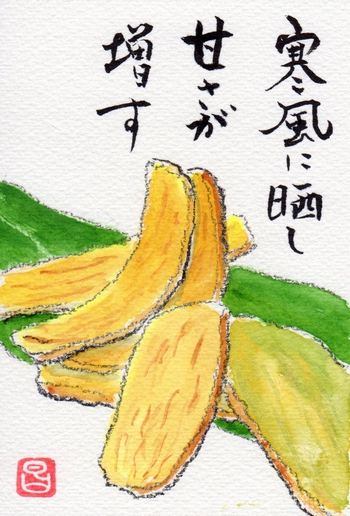 寒風に晒し
甘さが
増す